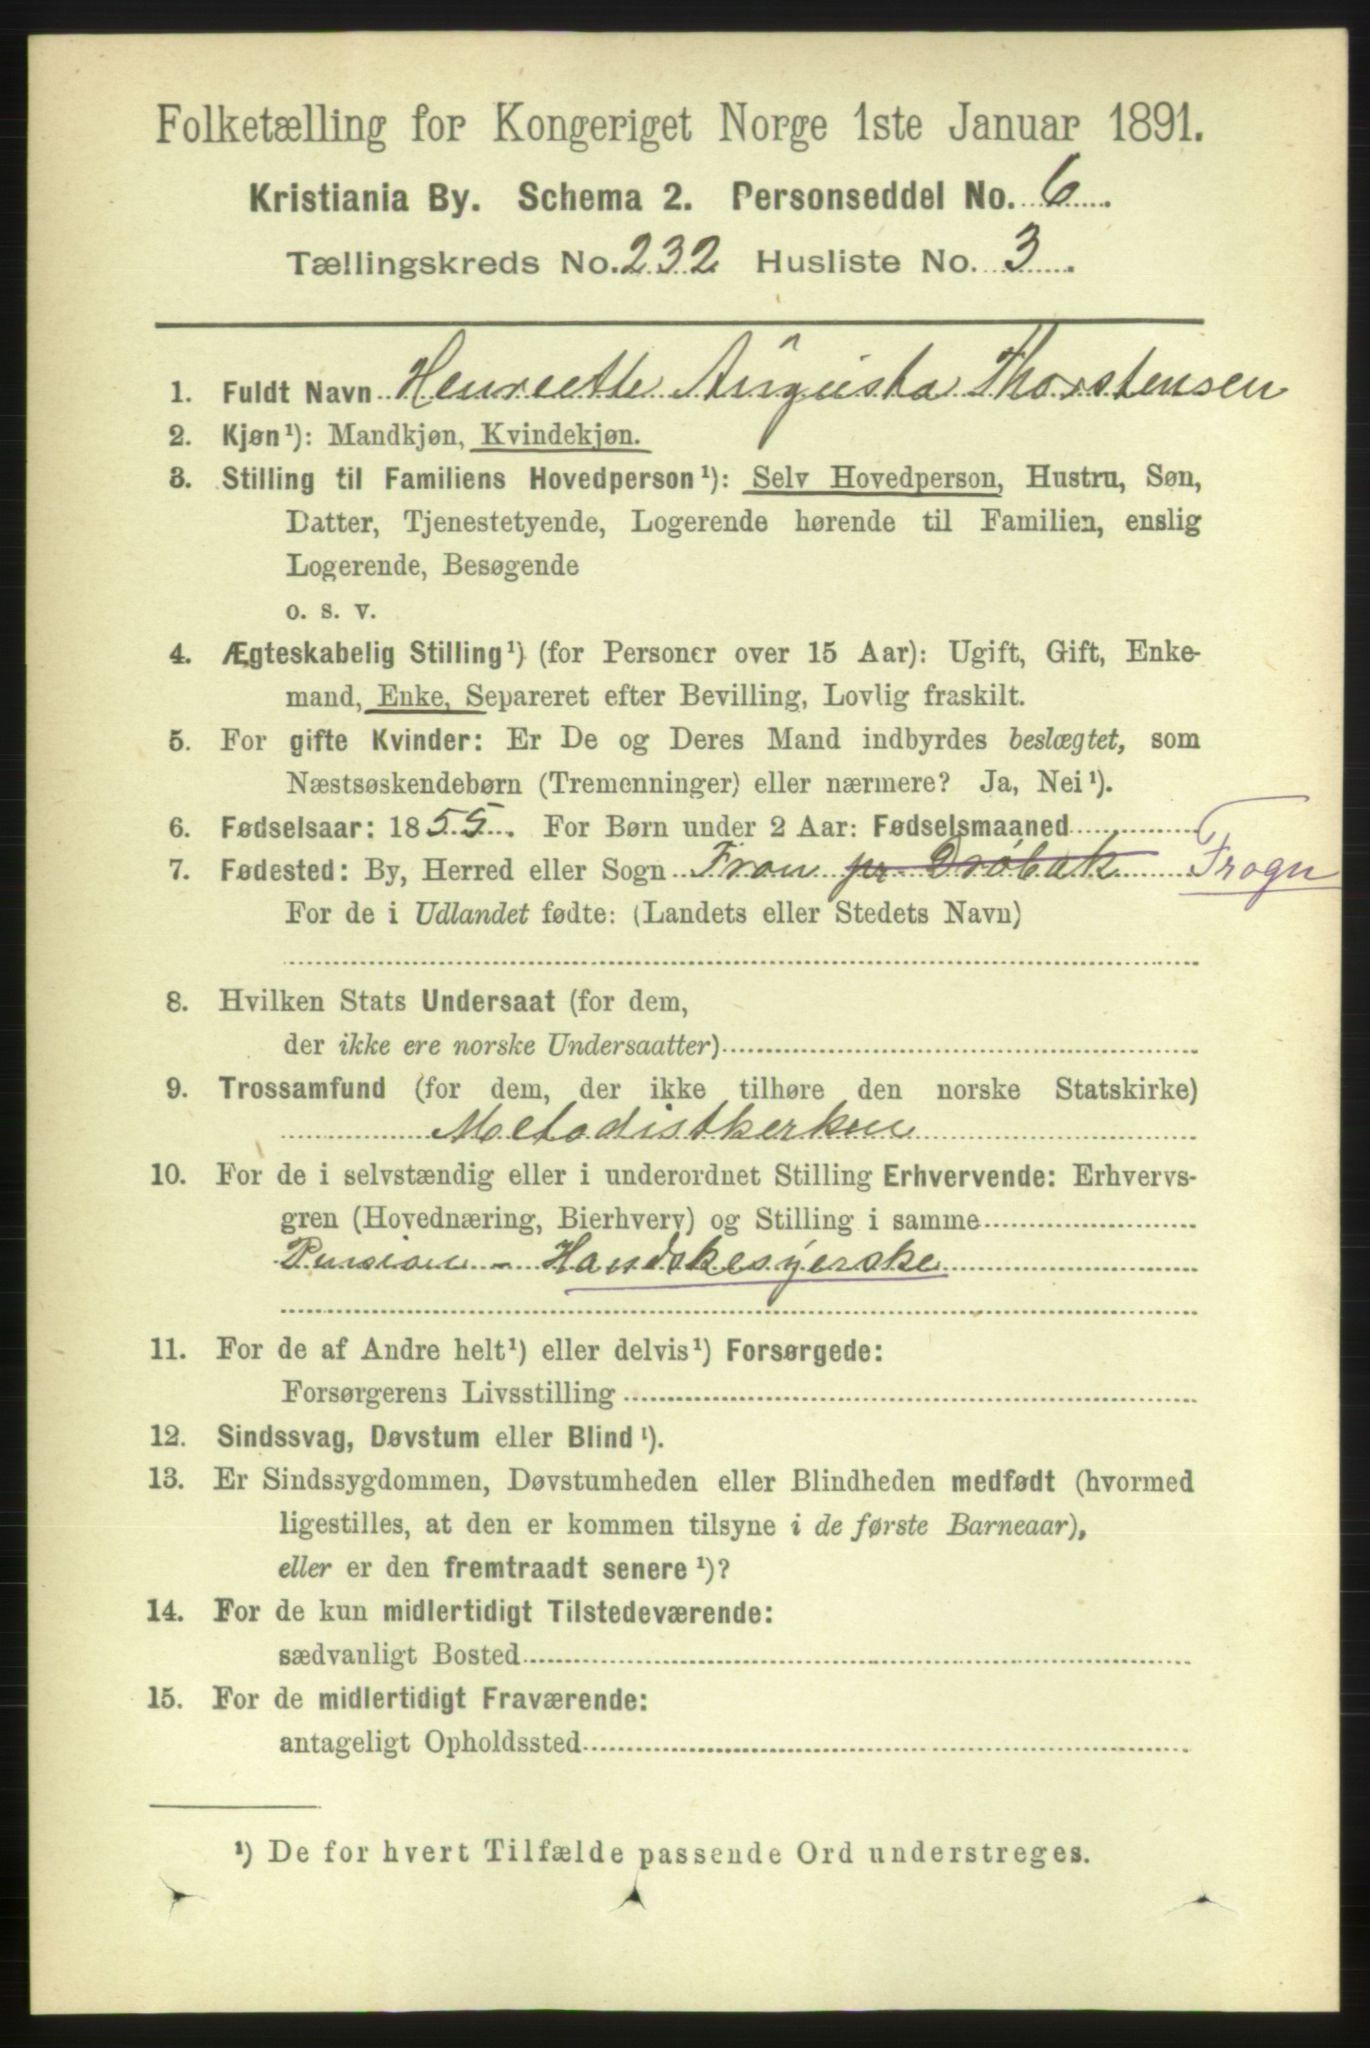 Folketælling for Kongeriget Norge 1ste Januar 1891.
Kristiania By. Schema 2. Personseddel No. 6
Tællingskreds No. 232 Husliste No. 3
1. Fuldt Navn Henreette Augusta Thorstensen
2. Kjøn¹): Mandkjøn, Kvindekjøn.
3. Stilling til Familiens Hovedperson¹): Selv Hovedperson, Hustru, Søn,
Datter, Tjenestetyende, Logerende hørende til Familien, enslig
Logerende, Besøgende
o. s. v.
4. Ægteskabelig Stilling¹) (for Personer over 15 Aar): Ugift, Gift, Enke-
mand, Enke, Separeret efter Bevilling, Lovlig fraskilt.
5. For gifte Kvinder: Er De og Deres Mand indbyrdes beslægtet, som
Næstsøskendebørn (Tremenninger) eller nærmere? Ja, Nei¹).
6. Fødselsaar: 1855. For Børn under 2 Aar: Fødselsmaaned
7. Fødested: By, Herred eller Sogn Fron pr Drøbak Frogn
For de i Udlandet fødte: (Landets eller Stedets Navn)
8. Hvilken Stats Undersaat (for dem,
der ikke ere norske Undersaatter)
9. Trossamfund (for dem, der ikke tilhøre den norske Statskirke)
Metodistkerken
10. For de i selvstændig eller i underordnet Stilling Erhvervende: Erhvervs-
gren (Hovednæring, Bierhverv) og Stilling i samme
Pension - Handskesyerske
11. For de af Andre helt¹) eller delvis¹) Forsørgede:
Forsørgerens Livsstilling
12. Sindssvag, Døvstum eller Blind¹).
13. Er Sindssygdommen, Døvstumheden eller Blindheden medfødt (hvormed
ligestilles, at den er kommen tilsyne i de første Barneaar),
eller er den fremtraadt senere¹)?
14. For de kun midlertidigt Tilstedeværende:
sædvanligt Bosted
15. For de midlertidigt Fraværende:
antageligt Opholdssted
¹) De for hvert Tilfælde passende Ord understreges.